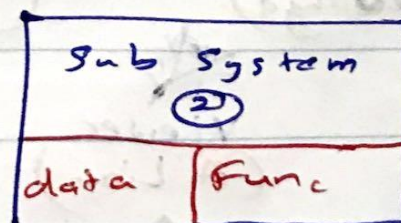 Sub System
2
data Func